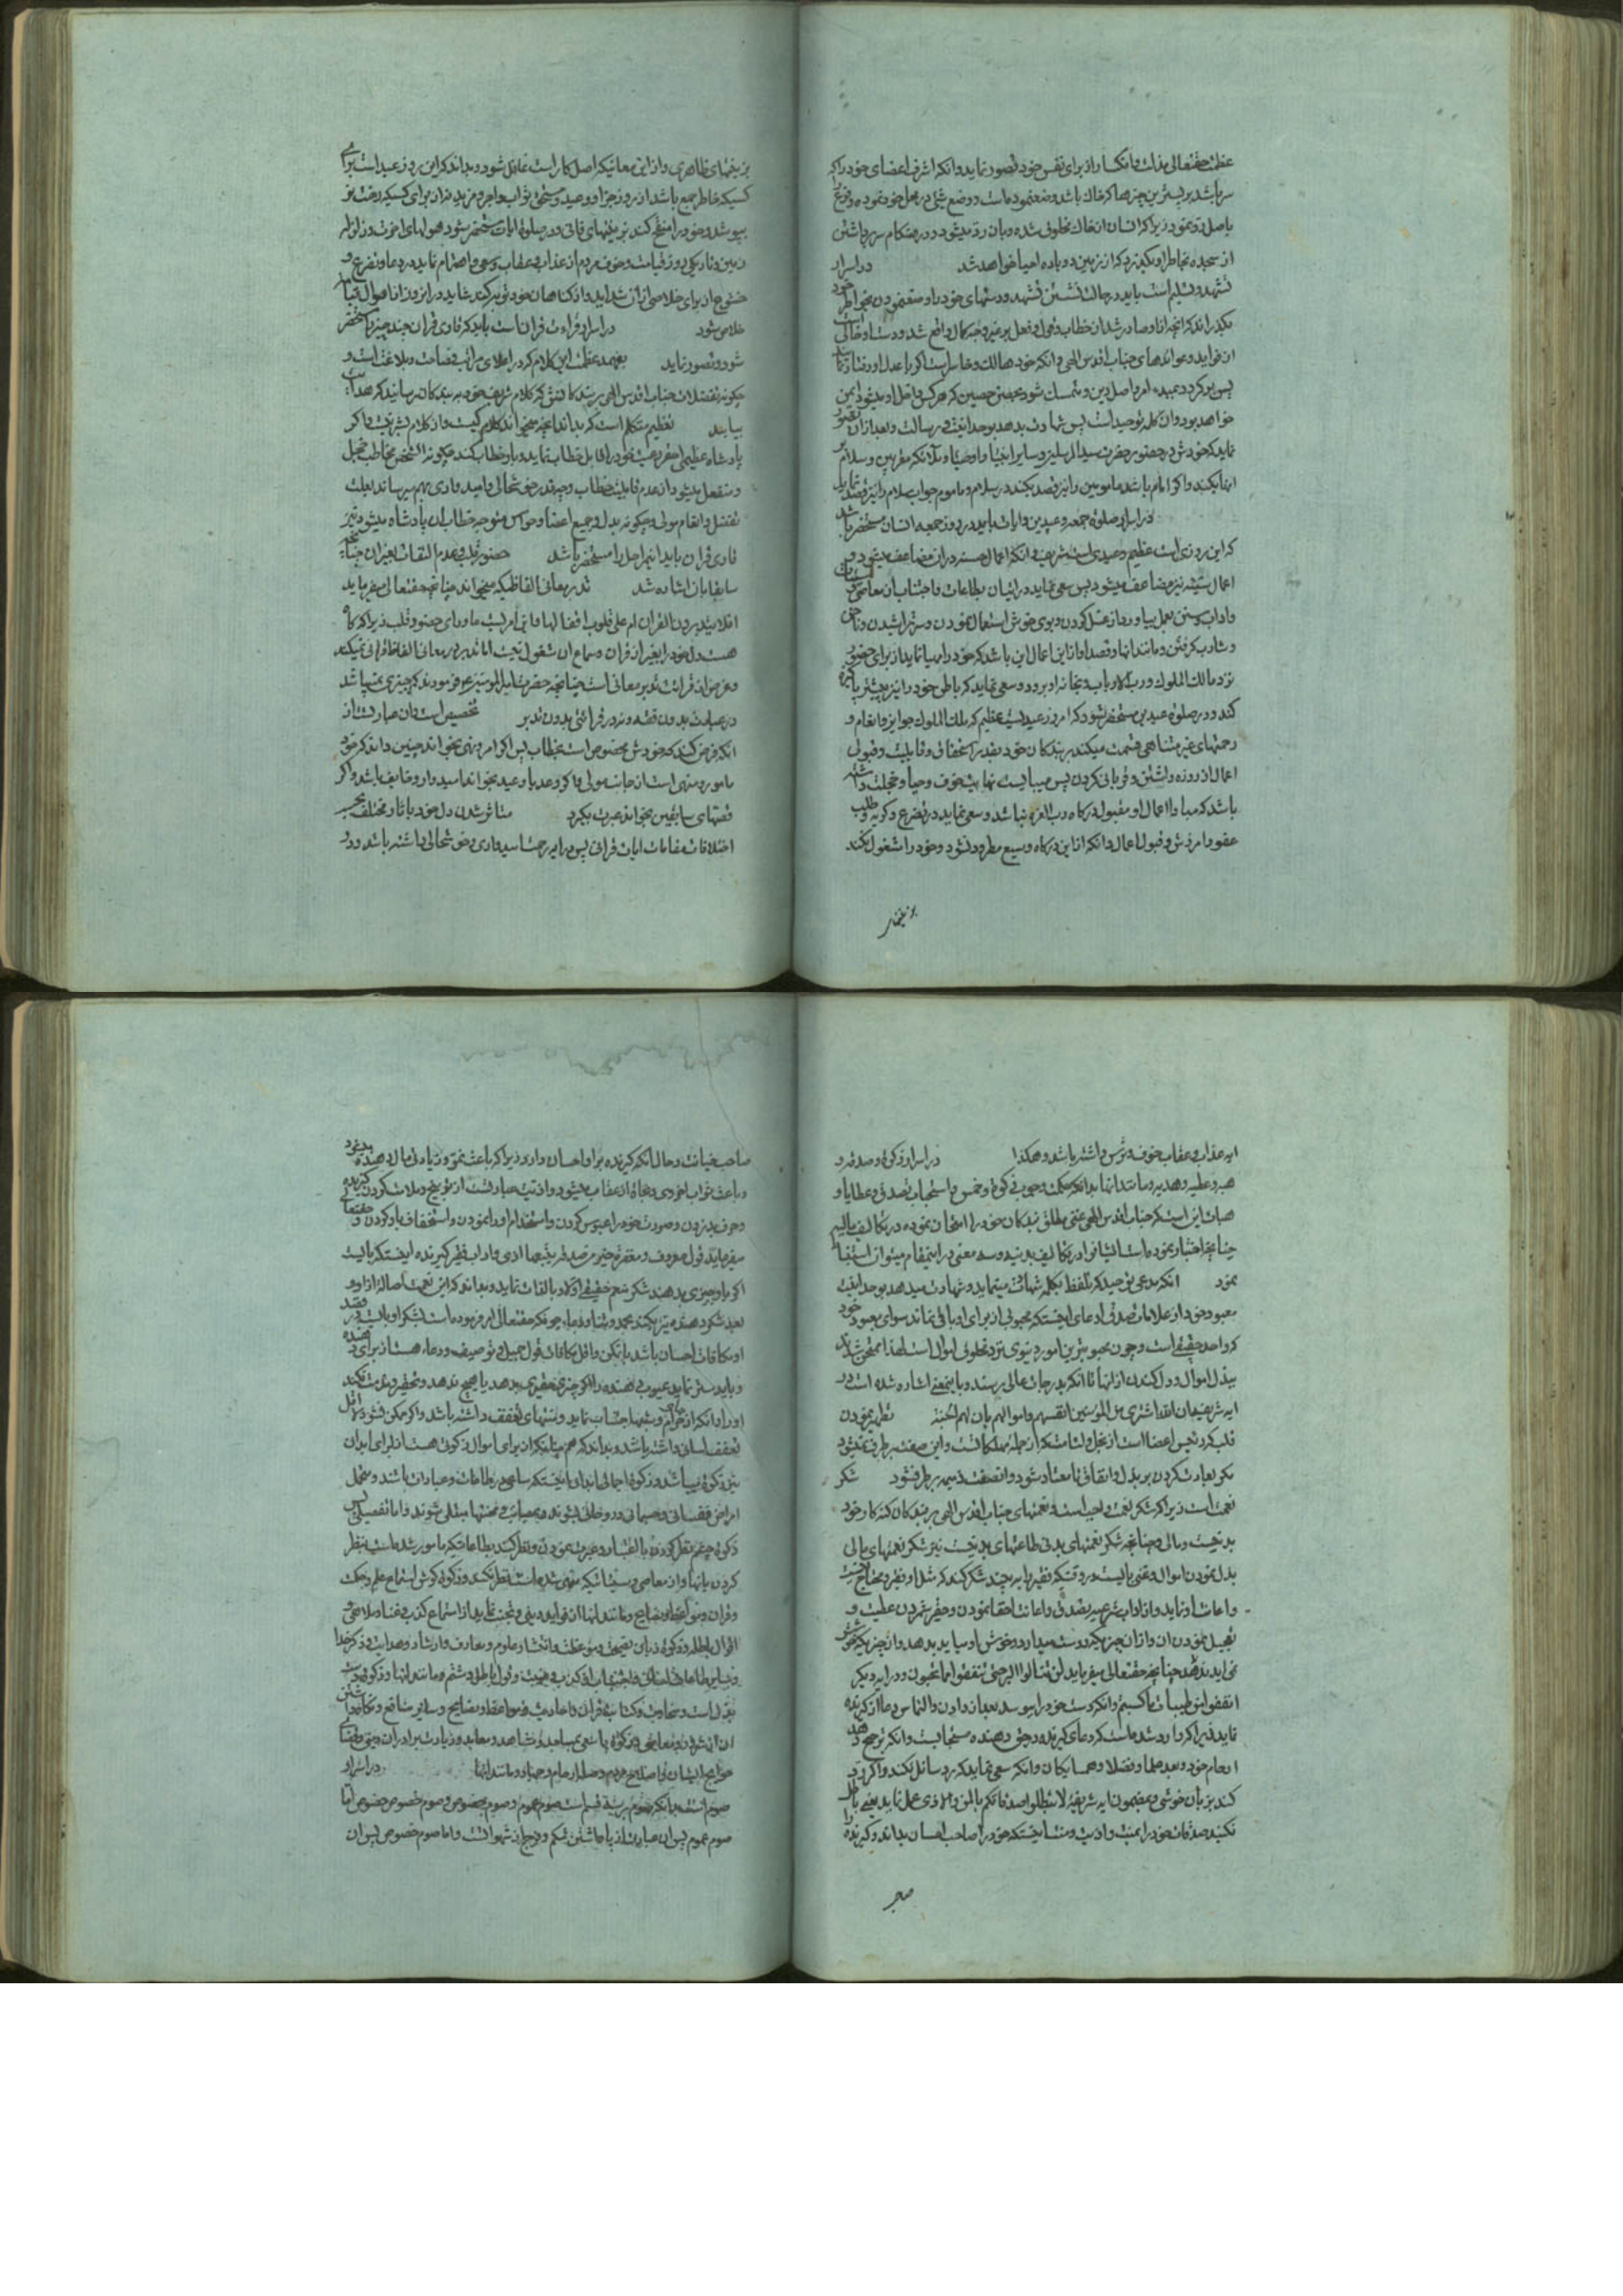 عظمت حقتعالی بذلت وانکسار از برای نفس خود تصور نماید وانکه اشرف اعضای خود را که
سر باشد بر پست ترین چیزها که خاک باشد وضع نموده است و وضع شیئ در محل خود نموده و فرع
باصل رد نمود زیرا که انسان از خاک مخلوق شده و بان رد میشود و در هنکام سر برداشتن
از سجده بخاطر او بکذرد که از زمین دوباره احیا خواهد شد در اسرار
تشهد و تسلیم است باید در حالت نشستن تشهد و دستهای خود را وضع نمودن بخواطر خود
بکذراند که انچه از او صادر شد از خطاب و قول و فعل بر غیر وجه کمال واقع شد و دست او خالی است
ان فواید و عواید های جناب اقدس الهی و انکه خود هالک و خاسر است اکر با عدل او رفتار نماید
پس برکردد بمبدء امر و اصل دین و متمسک شود بحصن حصین که هر کس داخل او میشود ایمن
خواهد بود و ان کلمه توحید است پس شهادت بدهد بوحدانیت و رسالت و بعد از ان تصور
نماید که خودش در حضور حضرت سید المرسلین و سایر انبیا و اوصیا و ملائکه مقربین و سلام بر
انها بکند و اکر امام باشد مامومین را نیز قصد بکند در سلام و ماموم جواب سلام را نیز قصد نماید
در اسرار صلوة جمعه و عیدین و ایات باید در روز جمعه انسان مستحضر باشد
که این روزی است عظیم و عیدی است شریف و انکه اعمال حسنه در ان مضاعف میشود و
اعمال سیئه نیز مضاعف میشود پس سعی نماید در اتیان بطاعات و اجتناب از معاصی
واداب و سنن بعمل بیاورد از غسل کردن و بوی خوش استعمال نمودن و سر تراشیدن و ناخن
و شارب کرفتن و مانند انها و قصد او از این اعمال این باشد که خود را مهیا نماید از برای حضور
نزد مالک الملوک و رب الارباب و بخانه او برود و سعی نماید که باطن خود را نیز بیشتر پاکیزه
کند و در صلوة عیدین مستحضر شود که امروز عیدیست عظیم که ملک الملوک جوایز و انعام و
رحمتهای غیر متناهی قسمت میکند بر بندکان خود بقدر استحقاق و قابلیت و قبولی
اعمال از روزه داشتن و قربانی کردن پس میبایست نهایت خوف و حیا و خجلت داشته
باشد که مبادا اعمال او مقبول درکاه رب العزه نباشد و سعی نماید در تضرع و کریه و طلب
عفو و امرزش و قبول اعمال و انکه از این درکاه وسیع مطرود نشود و خود را مشغول نکند
بزینتهای
بزینتهای ظاهری و از این معانیکه اصل کار است غافل شود و بداند که این روز عید است برای
کسیکه خاطر جمع باشد از روز جزا و وعید و مستحق ثواب و اجر و مزید نه از برای کسیکه رخت نو
بپوشد و خود را مشغول کند بزینتهای فانی و در صلوة ایات مستحضر شود هولهای اخرت و زلزله
زمین و تاریکی روز قیامت و خوف مردم از عذاب و عقاب و سعی و اهتمام نماید در دعا و تضرع و
خشوع از برای خلاصی از ان شداید و از کناهان خود توبه کند شاید در انروز از اهوال قیامت
خلاص شود در اسرار قراءت قران است باید که قاری قران چند چیز را مستحضر
شود و تصور نماید بفهمد عظمت این کلام که در اعلای مراتب فصاحت و بلاغت است و
چکونه تفضلات جناب اقدس الهی بر بندکانش که کلام شریف خود به بندکان رسانید که هدایت
بیابند تعظیم متکلم است که بداند انچه میخواند کلام کیست و از کلام بشر نیست و اکر
پادشاه عظیمی احقر رعیت خود را قابل خطاب نماید و باو خطاب کند چکونه ان شخص مخاطب خجل
و منفعل میشود از عدم قابلیت خطاب و چه قدر خوشحالی و امیدواری بهم میرساند بعلت
تفضل و انعام مولی و چکونه بدل و جمیع اعضا و حواس متوجه خطاب ان پادشاه میشود نیز
قاری قران باید این مراحل را مستحضر باشد حضور قلب و عدم التفات بغیر ان چنانچه
سابقا بان اشاره شد تدبر معانی الفاظیکه میخواند چنانچه حقتعالی میفرماید
افلا یتدبرون القران ام علی قلوب اقفالها و این امریست ماورای حضور قلب زیرا که کاه
هست دل خود را بغیر از قران و سماع ان مشغول نیست اما تدبر در معانی الفاظ قرانی نمیکند
و غرض از قرائت تدبر معانی است چنانچه حضرت امیر المومنین ع فرمودند که چیزی نمیباشد
در عبادت بدون فقه و نه در قرائتی بدون تدبر تخصیص است و ان عبارتست از
انکه فرض کند که خودش مخصوص است بخطاب پس اکر امر و نهی بخواند چنین داند که خود
مامور و منهی است از جانب مولی و اکر وعد یا وعید بخواند امیدوار و خایف باشد و اکر
قصهای سابقین بخواند عبرت بکیرد متاثر شدن دل خود باثار مختلف بحسب
اختلافات مقامات ایات قرانی پس در ایه رحمت امیدواری و خوشحالی داشته باشد و در
ایه عذاب و عقاب خوف و ترس داشته باشد و هکذا در اسرار زکوة و صدقه و
هبه و عطیه و هدیه و مانند انها بدانکه حکمت وجوب زکوة و خمس و استحباب تصدق و عطایا و
هبات این است که جناب اقدس الهی غنی مطلق بندکان خود را امتحان نموده در تکالیف مالیه
چنانچه اختبار نموده است ایشان را در تکالیف بدنیه و سه معنی در اینمقام میتوان استنباط
نمود انکه مدعی توحید که تلفظ بکلمه شهادت مینماید و شهادت میدهد بوحدانیت
معبود خود از علامات صدق ادعای او اینستکه محبوبی از برای او باقی نماند سوای معبود خود
که واحد حقیقی است و چون محبوبترین امور دنیوی نزد مخلوق اموال است لهذا ممتحن شدند
ببذل اموال و دل کندن از انها تا انکه بدرجات عالی برسند و باینمعنی اشاره شده است در
ایه شریفه ان الله اشتری من المؤمنین انفسهم و اموالهم بان لهم الجنة تطهیر نمودن
قلب که رئیس اعضا است از بخل و لئامت که از جمله مهلکاتست و این صفت بر طرف نمیشود
مکر بعادت کردن بر بذل و انفاق تا معتاد شود و انصفت ذمیمه بر طرف شود شکر
نعمت است زیرا که شکر نعمت واجب است و نعمتهای جناب اقدس الهی بر بندکان کنه کار خود
بدنیست و مالی و چنانچه شکر نعمتهای بدنی طاعتهای بدنیست نیز شکر نعمتهای مالی
بذل نمودن اموال و غنی بایست در وقتیکه فقیر را به بیند شکر کند که مثل او فقیر و محتاج نیست
و اعانت او نماید و از اداب شرعیه تصدق و اعانت اخفا نمودن و حقیر شمردن عطیت و
تعجیل نمودن ان و از ان چیزیکه دوست میدارد و خوش او میاید بدهد و از چیزیکه خوشش
نمی اید ندهد چنانچه حقتعالی میفرماید لن تنالوا البر حتی تنفقوا مما تحبون و در ایه دیکر
انفقوا من طیبات ما کسبتم و انکه دست خود را ببوسد بعد از دادن و التماس دعا از کیرنده
نماید زیرا که وارد شده است که دعای کیرنده در حق دهنده مستجابست و انکه ترجیح دهد
ارحام خود و بعد علما و فضلا و همسایکان و انکه سعی نماید که رد سائل نکند و اکر رد
کند بزبان خوش و بمضمون ایه شریفه لا تبطلوا صدقاتکم بالمن و الاذی عمل نماید یعنی باطل
نکنید صدقات خود را بمنت و اذیت و منت اینستکه خود را صاحب احسان بداند و کیرنده را
صاحب خیانت و حال انکه کیرنده بر او احسان دارد زیرا که باعث نمو و زیادتی مال دهنده میشود
و باعث ثواب اخروی و نجاة از عقاب میشود و اذیت عبارتست از توبیخ و ملامت کردن کیرنده
و حرف بد زدن و صورت خود را عبوس کردن و استخدام او را نمودن و استخفاف باو کردن و حقتعالی
میفرماید قول معروف و مغفرة خیر من صدقة یتبعها اذی و اداب فقیر کیرنده اینستکه بایست
اکر باو چیزی بدهند شکر منعم حقیقی اولا و بالذات نماید و بداند که این نعمت اصالة از او
بعد شکر دهنده نیز بکند بحمد و ثنا و دعا چونکه حقتعالی امر فرموده است بشکر او
او مکافات احسان باشد باید کن و اقل مکافات قول جمیل و توصیف و دعا هست از برای دهنده
و باید ستر نماید عیوب دهنده را اکر چیزی حقیری بدهد یا هیچ ندهد و تحقیر و مذمت نکند
او را و انکه از حرام و شبهه اجتناب نماید و منتهای تعفف داشته باشد و اکر ممکن نشود لا اقل
تعفف لسانی داشته باشد و بداند که همچنانکه از برای اموال زکوتی هست از برای ابدان
نیز زکوة میباشد و زکوة اجمالی ابدان اینستکه ساعی در طاعات و عبادات باشند و متحمل
امراض نفسانی و جسمانی و روحانی بشوند و بمصائب و محنتها مبتلی شوند و اما تفصیلی پس
زکوة چشم نظر کردن باعتبار و عبرت نمودن و نظر کند بطاعاتیکه مامور شده است بنظر
کردن بانها و از معاصی و سیئاتیکه منهی شده است نظر نکند و زکوة کوش استماع علم و حکمت
و قران و مواعظ و نصایح و مانند انها از فواید دینی و تجنب نماید از استماع کذب و غنا و ملاهی و
اقوال باطله و زکوة زبان نصیحت و موعظت و انتشار علوم و معارف و ارشاد و هدایت و ذکر خدا
و سایر طاعات لسانی و اجتناب از کذب و غیبت و قول باطل و شتم و مانند انها و زکوة دست
بذل است و سخاوت و کتابت قران و احادیث و مواعظ و نصایح و سایر منافع و نکاهداشتن
ان از شرور و معاصی و زکوة پا سعی بمساجد و مشاهد و معابد و زیارت برادران دینی و قضای
حوایج ایشان و اصلاح مردم و صله ارحام و جهاد و مانند انها در اسرار
صوم است بدانکه صوم بر سه قسم است صوم عموم و صوم خصوص و صوم خصوص خصوص اما
صوم عموم پس ان عبارت از باز داشتن شکم و فرج از شهواتست و اما صوم خصوص پس ان
صاحب